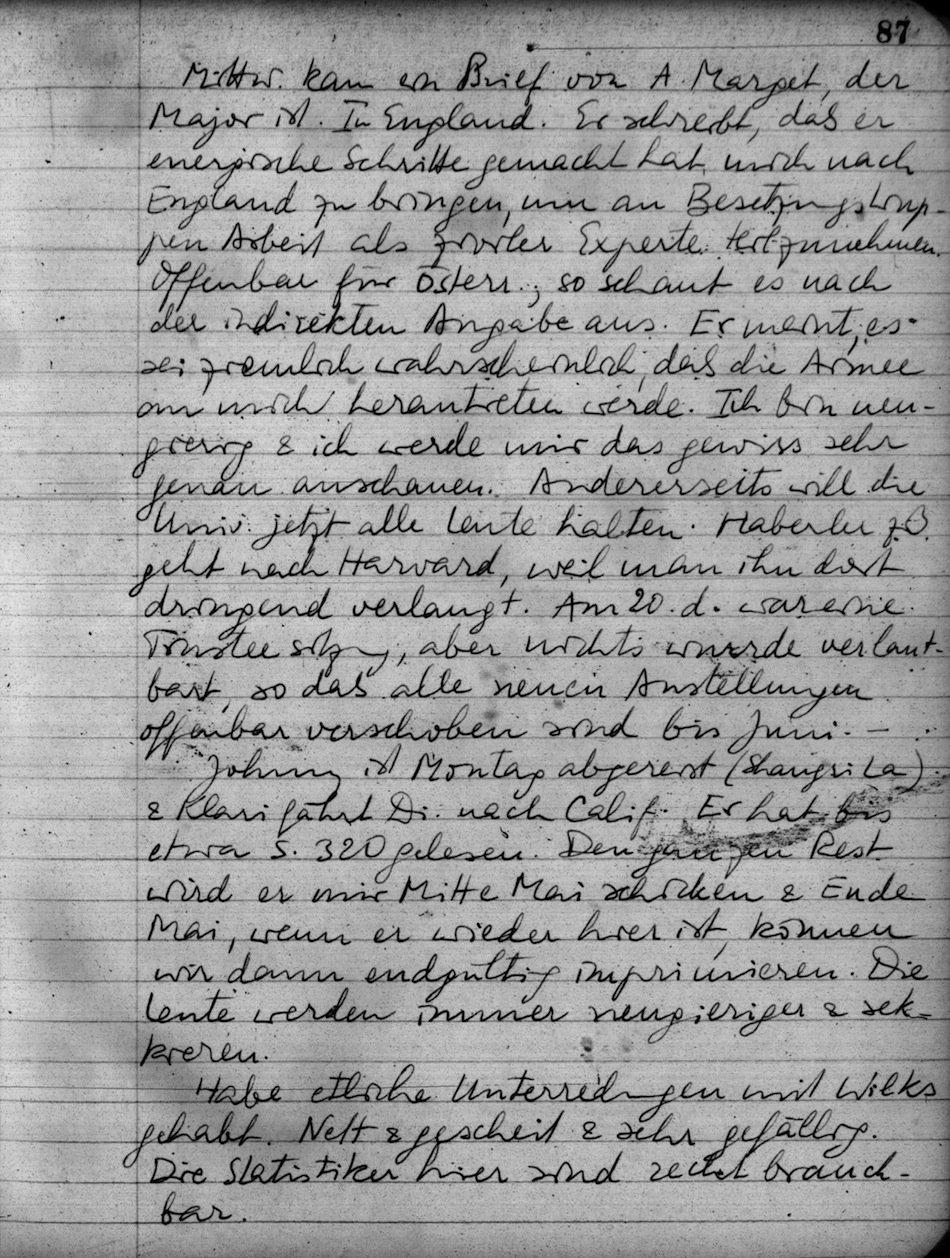 87
Mittw. kam ein Brief von A. Marget, der
Major ist. In England. Er schreibt, das er
energische Schritte gemacht hat, mich nach
England zu bringen, um an Besetzungstrup-
pen Arbeit als ziviler Experte teilzunehmen.
Offenbar für Österr., so schaut es nach
der indirekten Angabe aus. Er meint, es
sei ziemlich wahrscheinlich, das die Armee
an mich herantreten werde. Ich bin neu-
gierig & ich werde mir das gewiss sehr
genau anschauen. Andererseits will die
Univ. jetzt alle Leute halten. Haberler zB.
geht nach Harvard, weil man ihn dort
dringend verlangt. Am 20. d. war eine
Trustee sitzung, aber nichts wurde verlaut-
bart, so das alle neuen Anstellungen
offenbar verschoben sind bis Juni. –
Johnny ist Montag abgereist (Shangri La)
& Klari fährt Di. nach Calif. Er hat bis
etwa S. 320 gelesen. Den ganzen Rest
wird er mir Mitte Mai schicken & Ende
Mai, wenn er wieder hier ist, können
wir dann endgültig imprimieren. Die
Leute werden immer neugieriger & sek-
kieren.
Habe etliche Unterredungen mit Wilks
gehabt. Nett & gescheit & sehr gefällig.
Die Statistiker hier sind recht brauch-
bar.